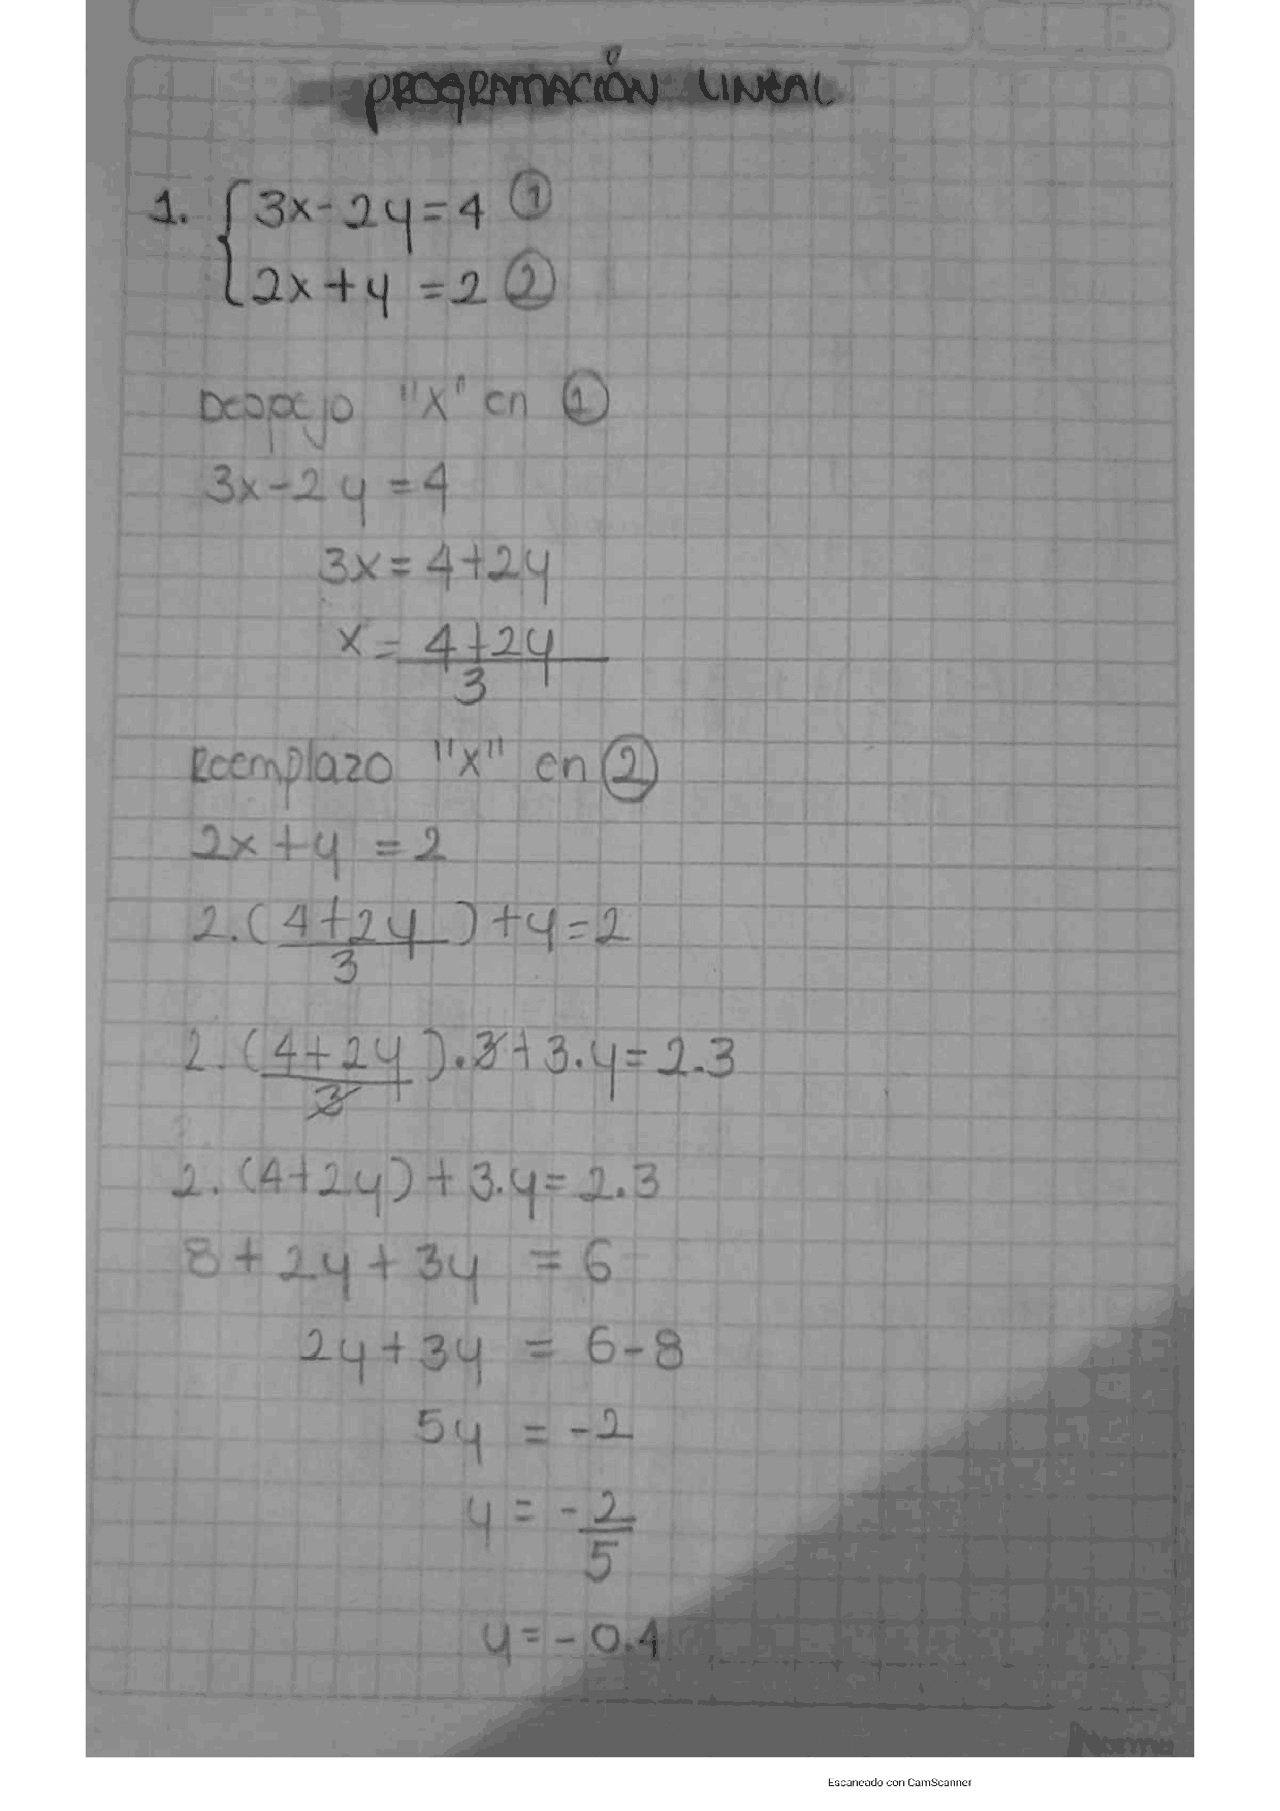 PROGRAMACIÓN LINEAL
1. { 3x-2y=4 ①
2x+y =2 ②
Despejo "x" en ①
3x-2y=4
3x=4+2y
x= 4+2y
3
Reemplazo "x" en ②
2x+y =2
2.(4+2y)+y=2
3
2.(4+2y).3+3.y=2.3
3
2.(4+2y)+3.y=2.3
8+2y+3y =6
2y+3y = 6-8
5y = -2
y = -2
5
y=-0.4
Norma
Escaneado con CamScanner